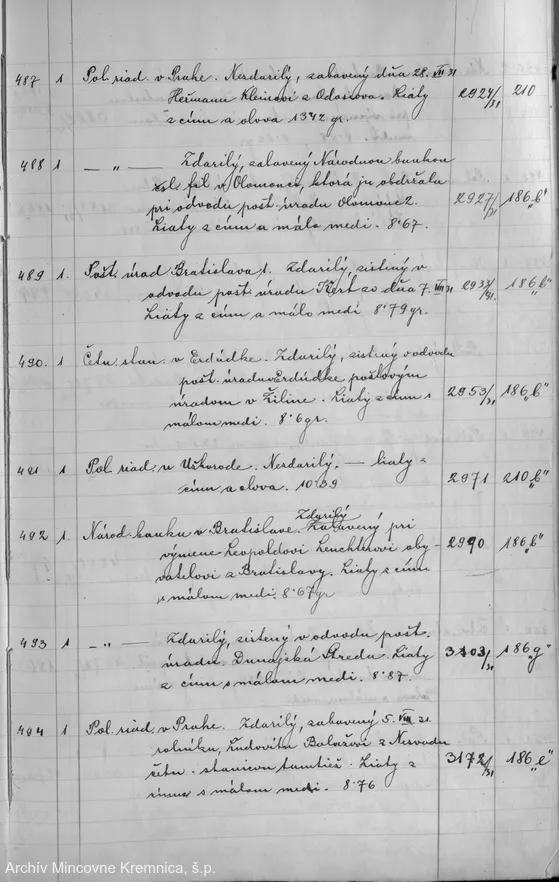 487 1 Pol. riad. v Prahe. Nezdarilý, zabavený dňa 28. VII 31
Heřmanu Kleinovi z Odosova. Liaty 2924/31 210
z cínu a olova 1342 gr.
488 1 — „ — Zdarilý, zabavený Národnou bankou
fil. v Olomouci, ktorá ju obdržala
pri odvodu pošt. úradu Olomouc 2. 2927/31 186 „b"
Liaty z cínu a málo medi. 8·67.
489 1. Pošt. úrad Bratislava 1. Zdarilý, zistený v
odvodu pošt. úradu zo dňa 7. VIII 31 2933/31 186 „b"
Liaty z cínu a málo medi 8·79 gr.
490. 1 Četn. stan. v Erdúdke. Zdarilý, zistený v odvodu
pošt. úradu v Erdúdke poštovým
úradom v Žiline. Liaty z cínu s 2953/31 186 „b"
málom medi. 8·6 gr.
491 1 Pol. riad. v Užhorode. Nezdarilý. — liaty z
cínu a olova. 10·39 2971 210 „b"
492 1. Národ. banku v Bratislave. Zdarilý zabavený pri
výmene Leopoldovi Leuchterovi oby- 2990 186 „b"
vatelovi z Bratislavy. Liaty z cínu
s málom medi. 8·67 gr
493 1 — „ — Zdarilý, zistený v odvodu pošt.
úradu Dunajská Streda. Liaty 3103/31 186 „g"
z cínu s málom medi. 8·87.
494 1 Pol. riad. v Prahe. Zdarilý, zabavený 5. VIII 31.
rolníku, Ľudovítu Balážovi z
četn. stanicou tamtiež. Liaty z 3172/31 186 „e"
cínu s málom medi. 8·76
Archív Mincovne Kremnica, š.p.